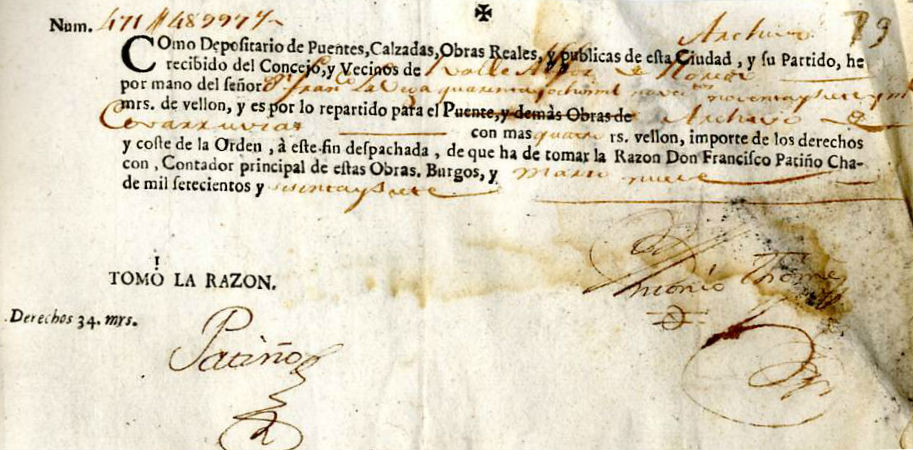 Num. 471 48997
Archivo 89
COmo Depositario de Puentes, Calzadas, Obras Reales, y publicas de esta Ciudad, y su Partido, he
recibido del Concejo, y Vecinos de Valle
por mano del señor Dn Franco La Vega quarenta y ocho mil novecos noventa y siete
mrs. de vellon, y es por lo repartido para el Puente, y demàs Obras de Archivo de
Covarruvias con mas quatro rs. vellon, importe de los derechos
y coste de la Orden, à este fin despachada, de que ha de tomar la Razon Don Francisco Patiño Cha-
con, Contador principal de estas Obras. Burgos, y Marzo nueve
de mil setecientos y sesenta y siete
TOMÓ LA RAZON.
Antonio Thome
Derechos 34. mrs.
Patiño